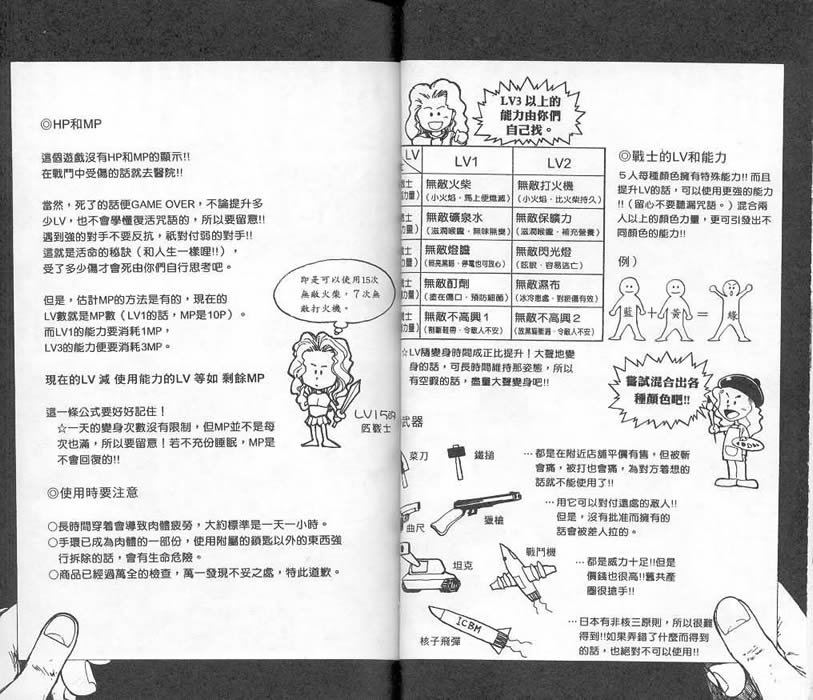 ◎HP和MP
這個遊戲沒有HP和MP的顯示!!
在戰鬥中受傷的話就去醫院!!
當然，死了的話便GAME OVER，不論提升多
少LV，也不會學懂復活咒語的，所以要留意!!
遇到強的對手不要反抗，祇對付弱的對手!!
這就是活命的秘訣（和人生一樣哩!!），
受了多少傷才會死由你們自行思考吧。
但是，估計MP的方法是有的，現在的
LV數就是MP數（LV1的話，MP是10P）。
而LV1的能力要消耗1MP，
LV3的能力便要消耗3MP。
現在的LV 減 使用能力的LV 等如 剩餘MP
這一條公式要好好記住！
☆一天的變身次數沒有限制，但MP並不是每
次也滿，所以要留意！若不充份睡眠，MP是
不會回復的!!
即是可以使用15次
無敵火柴，7次無
敵打火機。
LV15的
伍戰士
◎使用時要注意
○長時間穿着會導致肉體疲勞，大約標準是一天一小時。
○手環已成為肉體的一部份，使用附屬的鎖匙以外的東西強
行拆除的話，會有生命危險。
○商品已經過萬全的檢查，萬一發現不妥之處，特此道歉。
LV3以上的
能力由你們
自己找。
LV
LV1
LV2
士
力量）
無敵火柴
（小火焰．馬上便熄滅）
無敵打火機
（小火焰．比火柴持久）
士
力量）
無敵礦泉水
（滋潤喉嚨．無味無臭）
無敵保礦力
（滋潤喉嚨．補充營養）
士
力量）
無敵燈膽
無敵閃光燈
（眩眼．容易逃亡）
士
力量）
無敵酊劑
（塗在傷口．預防細菌）
無敵濕布
（冰冷患處．對扭傷有效）
士
力量）
無敵不高興1
（割斷鞋帶．令敵人不安）
無敵不高興2
（放黑貓衝過．令敵人不安）
☆LV隨變身時間成正比提升！大聲地變
身的話，可長時間維持那姿態，所以
有空假的話，盡量大聲變身吧!!
◎戰士的LV和能力
5人每種顏色擁有特殊能力!!而且
提升LV的話，可以使用更強的能力
!!（留心不要聽漏咒語。）混合兩
人以上的顏色力量，更可引發出不
同顏色的能力!!
例）
藍＋黃＝綠
嘗試混合出各
種顏色吧!!
武器
菜刀
鐵鎚
…都是在附近店舖平價有售，但被斬
會痛，被打也會痛，為對方着想的
話就不能使用了!!
曲尺
獵槍
…用它可以對付遠處的敵人!!
但是，沒有批准而擁有的
話會被差人拉的。
坦克
戰鬥機
…都是威力十足!!但是
價錢也很高!!舊共產
圈很搶手!!
ICBM
核子飛彈
…日本有非核三原則，所以很難
得到!!如果弄錯了什麼而得到
的話，也絕對不可以使用!!